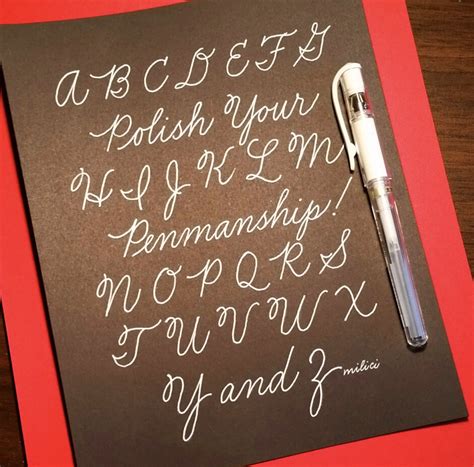 A B C D E F G
Polish Your
H I J K L M
Penmanship!
N O P Q R S
T U V W X
Y and Z milici